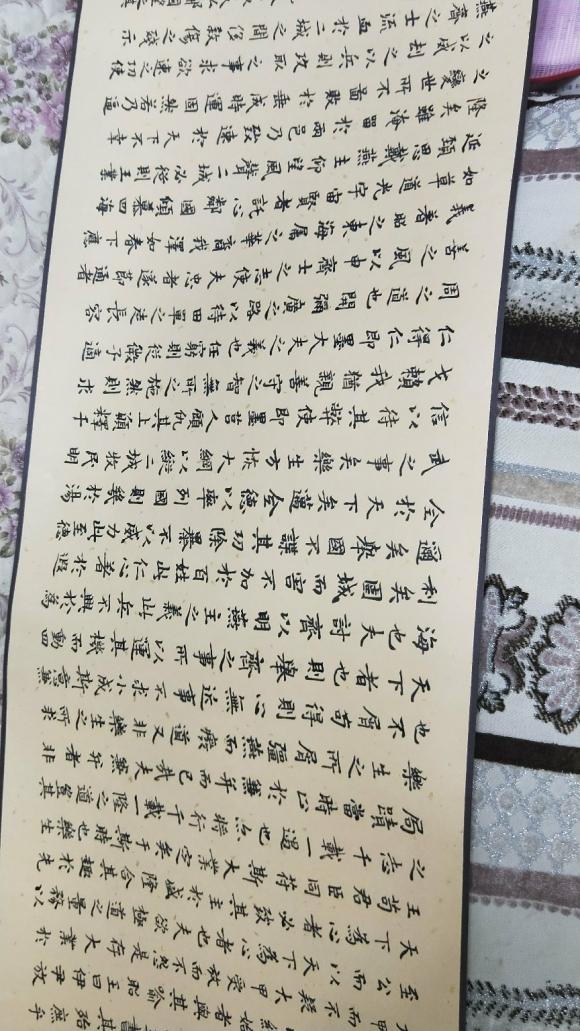 書其殆庶乎
始者與其喻昭王曰伊尹放
大甲而不疑大甲受放而不怨是存大業於
至公而以天下為心者也夫欲極道之量務以
天下為心者必致其主於盛隆合其趣於先
王苟君臣同符斯大業定矣于斯時也樂生
之志千載一遇也亦將行千載一隆之道豈其
局蹟當時止於兼并而已哉夫兼并者非
樂生之所屑彊燕而廢道又非樂生之所求
也不屑苟得則心無近事不求小成斯意兼
天下者也則舉齊之事所以運其機而動四
海也夫討齊以明燕主之義此兵不興於為
利矣圍城而害不加於百姓此仁心著於遐
邇矣舉國不謀其功除暴不以威力此至德
全於天下矣邁全德以率列國則幾於湯
武之事矣樂生方恢大綱以縱二城牧民明
信以待其弊使即墨莒人顧仇其上願釋干
戈賴我猶親善守之智無所之施然則求
仁得仁即墨大夫之義也任窮則從微子適
周之道也開彌廣之路以待田單之徒長容
善之風以申齊士之志使夫忠者遂節通者
義著昭之東海屬之華裔我澤如春下應
如草道光宇宙賢者託心鄰國傾慕四海
延頸思戴燕主仰望風聲二城必從則王業
隆矣雖淹留於兩邑乃致速於天下不幸
之變世所不圖敗於垂成時運固然若乃逼
之以威劫之以兵則攻取之事求欲速之功使
燕齊之士流血於二城之間侈殺傷之殘示